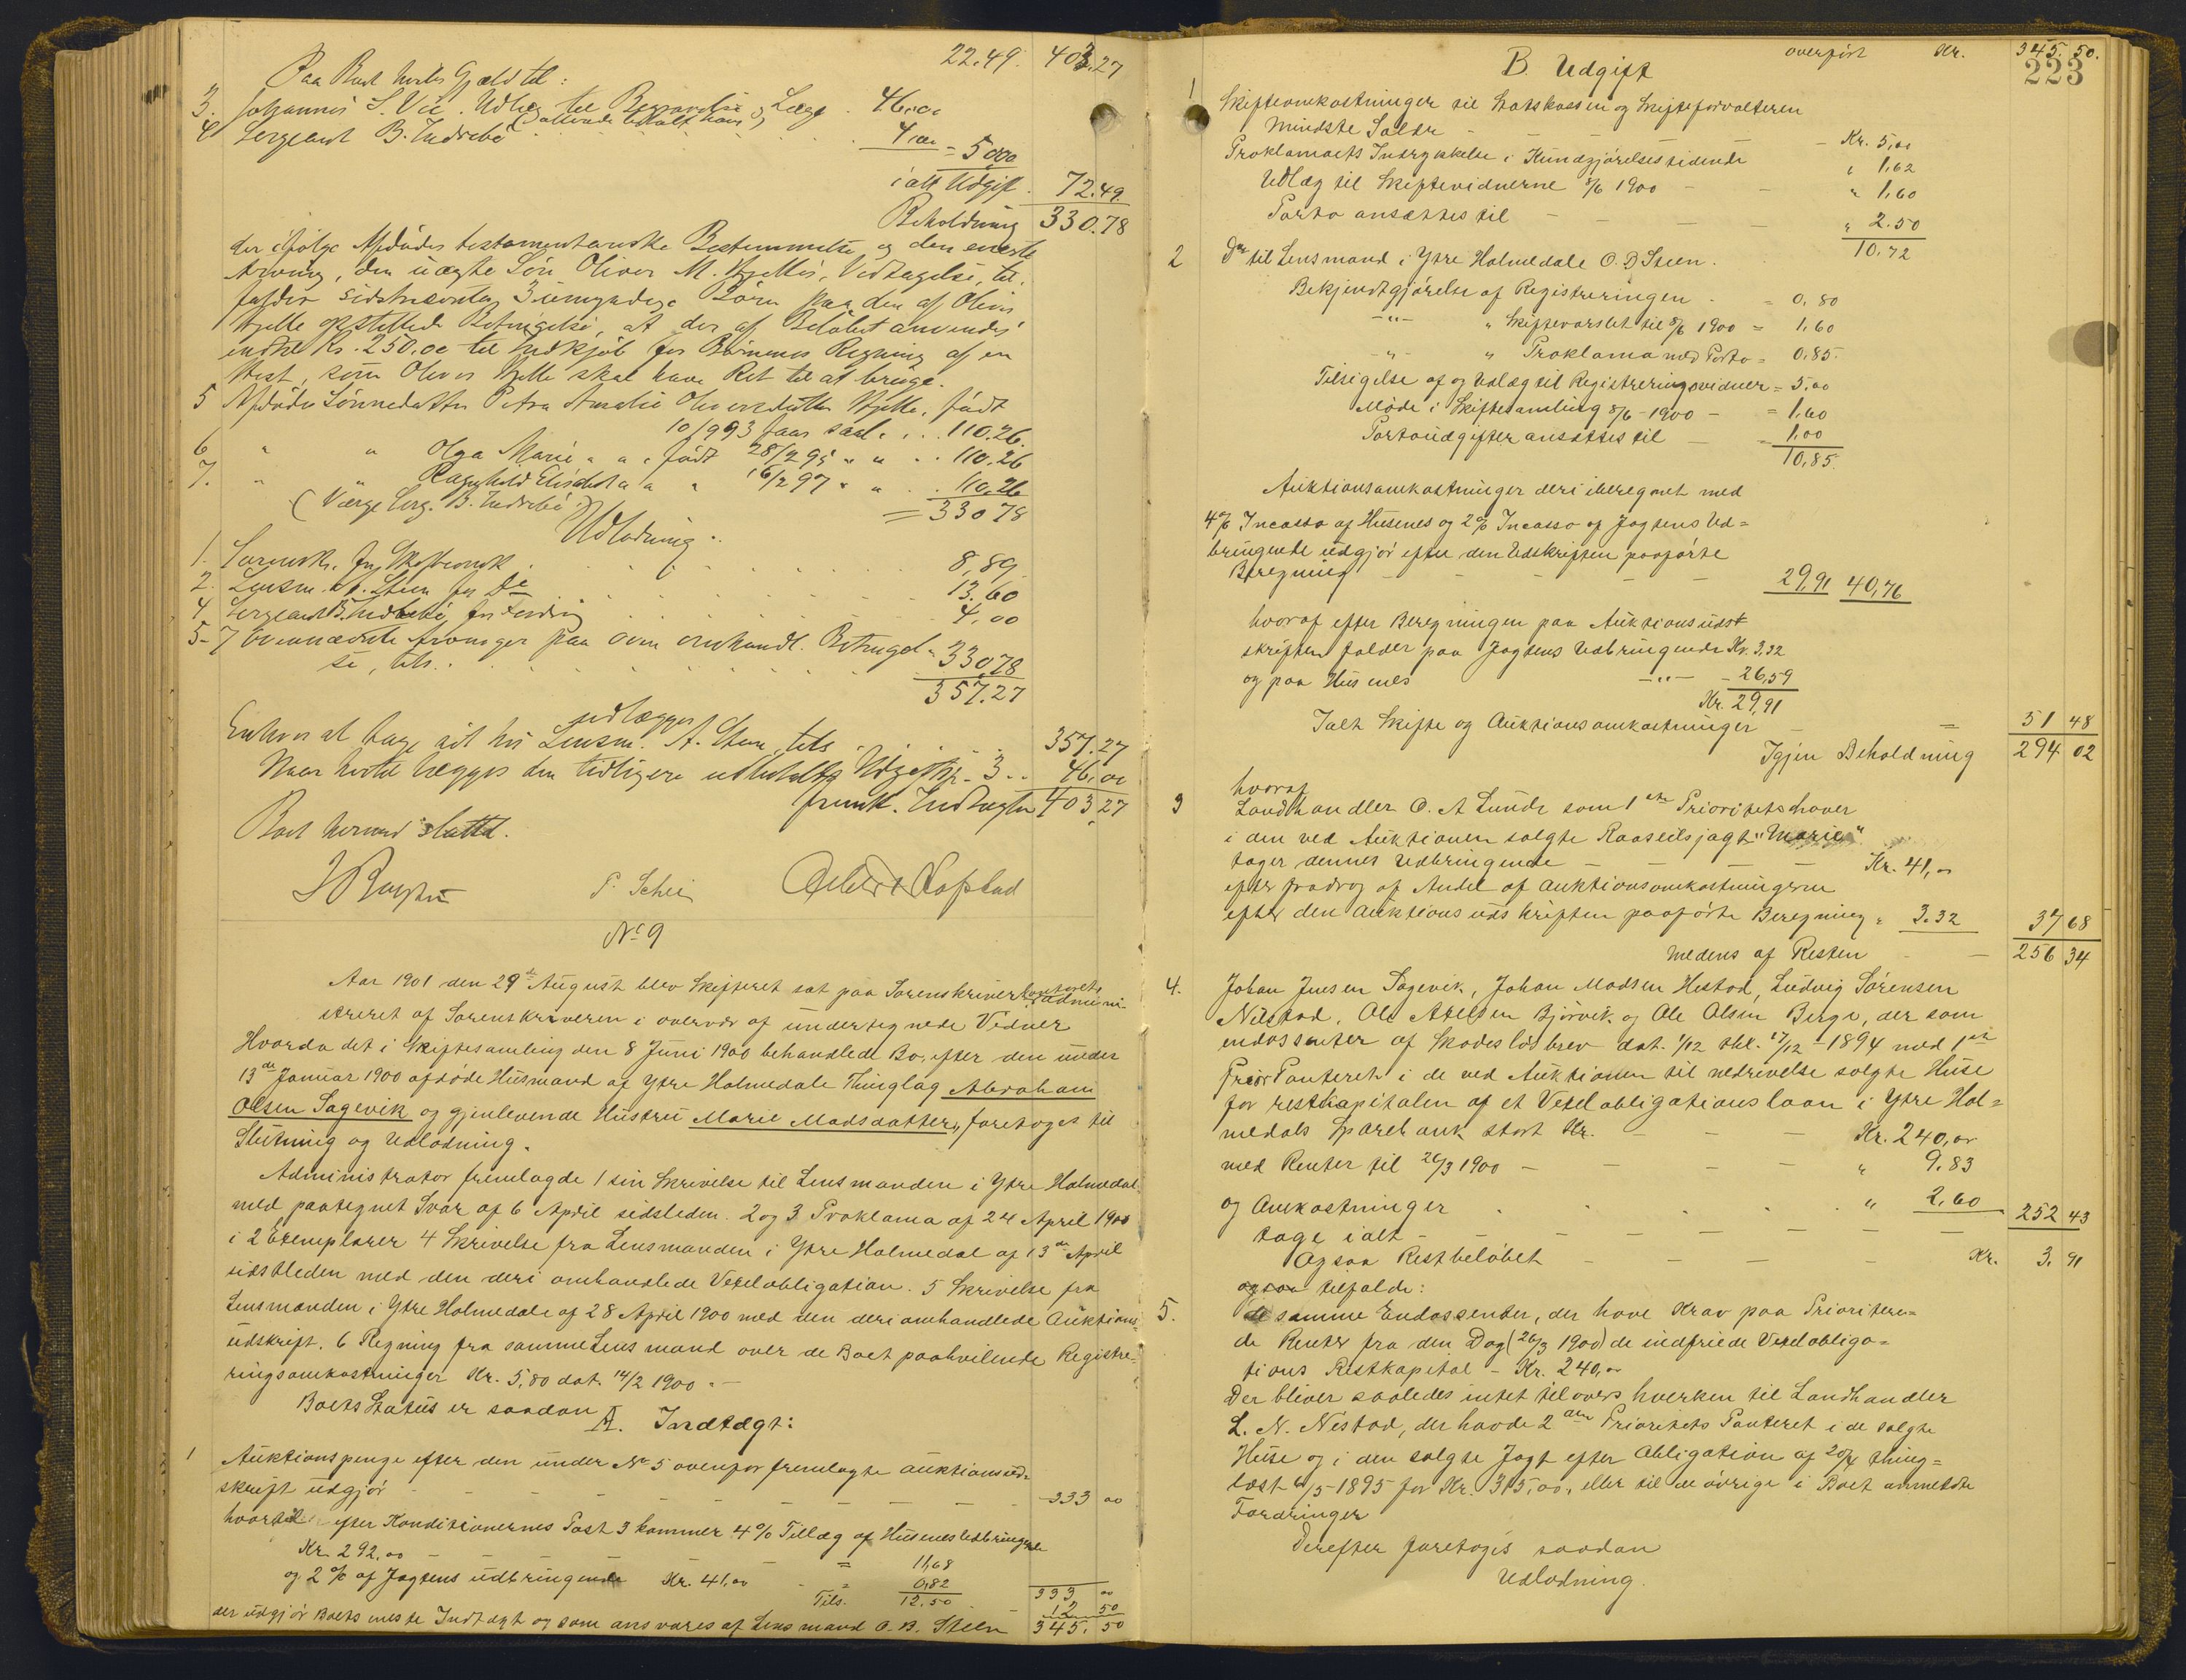 22.49. 403.27
Paa Boet hviler Gjæld til:
3. Johannes S. Vie. Udlæg til Begravelse og Læge . 46.00
(allerede udbetalt ham)
4 Sergeant B. Indrebø . . . . . 4,00 = 50.00
ialt Udgift . 72.49
Beholdning 330.78
der ifølge Afdødes testamentariske Bestemmelse og den eneste
Arving, den uægte Søn Oliver M. Hjelles, Vedtagelse, til-
falder sidstnævntes 3 umyndige Børn paa den af Oliver
Hjelle opstillede Betingelse, at der af Beløbet anvendes
indtil Kr. 250.00 til Indkjøb for Børnenes Regning af en
Hest, som Oliver Hjelle skal have Ret til at bruge.
5 Afdødes Sønnedatter Petra Amalie Oliversdatter Hjelle, født
10/9 93 faar saal. . . 110.26.
6 " " Olga Marie " " født 28/2 95 " " . . 110.26
7. " " Ragnhild Elisabet " " " 16/2 97 " " . . 110.26
(Værge Serg. B. Indrebø) = 330 78
Udlodning:
1. Sorenskr. for Skifteomk. . . . . . 8,89
2. Lensm. A. Steen for Do . . . . . 13.60
4 Sergeant B. Indrebø for Fordring . . . . 4,00
5-7 Ovennævnte Arvinger paa oven omhandl. Betingel-
se, tils. . . . . . . 330 78
357.27
udlægges
Enhver at tage sit hos Lensm. A. Steen, tils . . . 357.27
Naar hertil lægges den tidligere udbetalte Udgiftsp. 3 . . 46,00
fremk. Indtægten 403.27
Boet hermed sluttet.
P. Schei
No 9
Aar 1901 den 29de August blev Skifteret sat paa Sorenskriverkontoret admini-
streret af Sorenskriveren i overvær af undertegnede Vidner
Hvorda det i Skiftesamling den 8 Juni 1900 behandlede Bo, efter den under
13de Januar 1900 afdøde Husmand af Ytre Holmedale Thinglag Abraham
Olsen Sagevik og gjenlevende Hustru Marie Madsdatter, foretoges til
Slutning og Udlodning.
Administrator fremlagde 1 sin Skrivelse til Lensmanden i Ytre Holmedal
med paategnet Svar af 6 April sidstleden. 2 og 3 Proklama af 24 April 1900
i 2 Exemplarer 4 Skrivelse fra Lensmanden i Ytre Holmedal af 13de April
sidstleden med den deri omhandlede Vexelobligation. 5 Skrivelse fra
Lensmanden i Ytre Holmedale af 28 April 1900 med den deri omhandlede Auktions-
udskrift. 6 Regning fra samme Lensmand over de Boet paahvilende Registre-
ringsomkostninger Kr. 5,80 dat. 14/2 1900. —
Boets Status er saadan
A. Indtægt:
1 Auktionspenge efter den under No 5 ovenfor fremlagte auktionsud-
skrift udgjør — — — — — — — 333 00
hvortil efter Konditionernes Post 3 kommer 4% Tillæg af Husenes Udbringende
Kr. 292,00 — — — = 11,68
og 2 % af Jagtens udbringende Kr. 41,00 - = 0,82 333, 00
Tils. 12.50 12 50
der udgjør Boets meste Indtægt og som ansvares af Lensmand O. B. Steen 345. 50
overført Kr. 345. 50.
223
B. Udgift
1 Skifteomkostninger til Statskassen og Skifteforvalteren
Mindste Saldr - — — — — Kr. 5,00
Proklamaets Indrykkelse i Kundgjørelsestidende " 1,62
Udlæg til Skiftevidnerne 8/6 1900 — — " 1,60
Porto ansættes til — — — — " 2.50
10,72
2 Do til Lensmand i Ytre Holmedale O. B Steen.
Bekjendtgjørelse af Registreringen - = 0,80
—"— " Skiftevarslet til 8/6 1900 = 1,60
-"- " Proklama med Porto = 0,85.
Tilsigelse af og Udlæg til Registreringsvidner = 5,00
Møde i Skiftesamling 8/6 - 1900 — = 1,60
Portoudgifter ansættes til — = 1,00
10,85.
Auktionsomkostninger deri iberegnet med
4% Incasso af Husenes og 2% Incasso af Jagtens Ud=
bringende udgjør efter den Udskriften paaførte
Beregning — — — — — 29,91 40,76
hvoraf efter Beregningen paa Auktionsudst
skriften falder paa Jagtens Udbringende Kr. 3,32
og paa Husenes —"— - 26,59
Kr. 29,91
Ialt Skifte og Auktionsomkostninger — = 51 48
Igjen Beholdning 294 02
hvoraf
3 Landhandler O. A Lunde som 1ste Prioritetshaver
i den ved Auktionen solgte Raaseilsjagt "Marie"
tager dennes Udbringende — — — — Kr. 41,00
efter fradrag af Andel af auktionsomkostningerne
efter den auktionsudskriften paaførte Beregning " 3.32 37 68
medens af Resten — — 256 34
4. Johan Jensen Sagevik, Johan Madsen Hestad, Ludvig Sørensen
Nilstad, Ole Axelsen Bjørvik og Ole Olsen Berge, der som
endossenter af Skadesløsbrev dat. 1/12 thl. 17/12 - 1894 med 1ste
Prior Panteret i de ved Auktionen til nedrivelse solgte Huse
for restkapitalen af et Vexelobligationslaan i Ytre Hol=
medals Sparebank stort Kr. — — — Kr. 240,00
med Renter til 26/3 1900 — — — — " 9.83
og Omkostninger . . . . " 2,60 252 43
tage ialt — — — — — — —
Ogsaa Restbeløbet — — — — — Kr. 3,91
ogsaa tilfalde:
5. de samme Endossenter, der have Krav paa Prioritere=
de Renter fra den Dag (26/3 1900) de indfriede Vexelobliga=
tions Restkapital - Kr. 240,00
Der bliver saaledes intet tilovers hverken til Landhandler
L. N. Nestad, der havde 2den Prioritets Panteret i de solgte
Huse og i den solgte Jagt efter Obligation af 20/4 thing=
læst 6/5 - 1895 for Kr. 315,00, eller til de øvrige i Boet anmeldte
Fordringer
Derefter foretoges saadan
Udlodning.